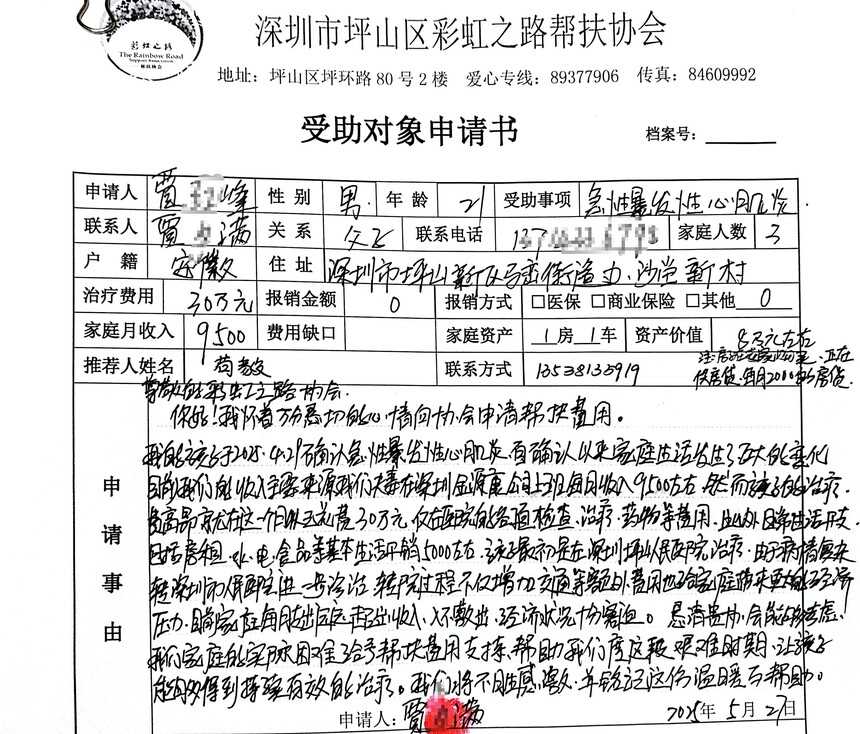 彩虹之路
The Rainbow Road
Support Association
深圳市坪山区彩虹之路帮扶协会
地址：坪山区坪环路80号2楼 爱心专线：89377906 传真：84609992
受助对象申请书
档案号：
申请人 贾 峰 性别 男 年龄 21 受助事项 急性暴发性心肌炎
联系人 贾 满 关系 父子 联系电话 家庭人数 3
户籍 安徽 住址 深圳市坪山新区马峦街道 沙 新村
治疗费用 30万元 报销金额 0 报销方式 □医保 □商业保险 □其他 0
家庭月收入 9500 费用缺口 家庭资产 1房1车 资产价值 8万元左右
正在
推荐人姓名 联系方式 13538133919 供房贷.每月2000 房贷
尊敬的彩虹之路协会.
你好！我怀着万分恳切的心情向协会申请帮扶费用。
申请事由
我的孩子于2025.4.29 确认急性暴发性心肌炎.自确认以来家庭生活发生了巨大的变化
目前我们的收入主要来源我们夫妻在深圳金源 公司上班每月收入9500左右.然而孩子的治疗
费高昂 就在这一个月 花费30万元.仅 医院的各项检查、治疗、药物等费用.此外日常生活开支
包括房租.水.电.食品等基本生活开销5000左右.该 最初是在深圳坪山人民医院治疗.由于病情
转深圳市人民医院进一步诊治.转院过程不仅增加交通等额外费用也给家庭带来更 的经济
压力.目前家庭每月支出 收入.入不敷出.经济状况十分窘迫。恳请贵协会能 考虑
我们家庭的实际困难给予帮扶费用支持.帮助我们度这段艰难时期.让孩子
能 得到持续有效的治疗。我们将不胜感激.并铭记这份温暖与帮助。
申请人：贾 满 2025年5月21日